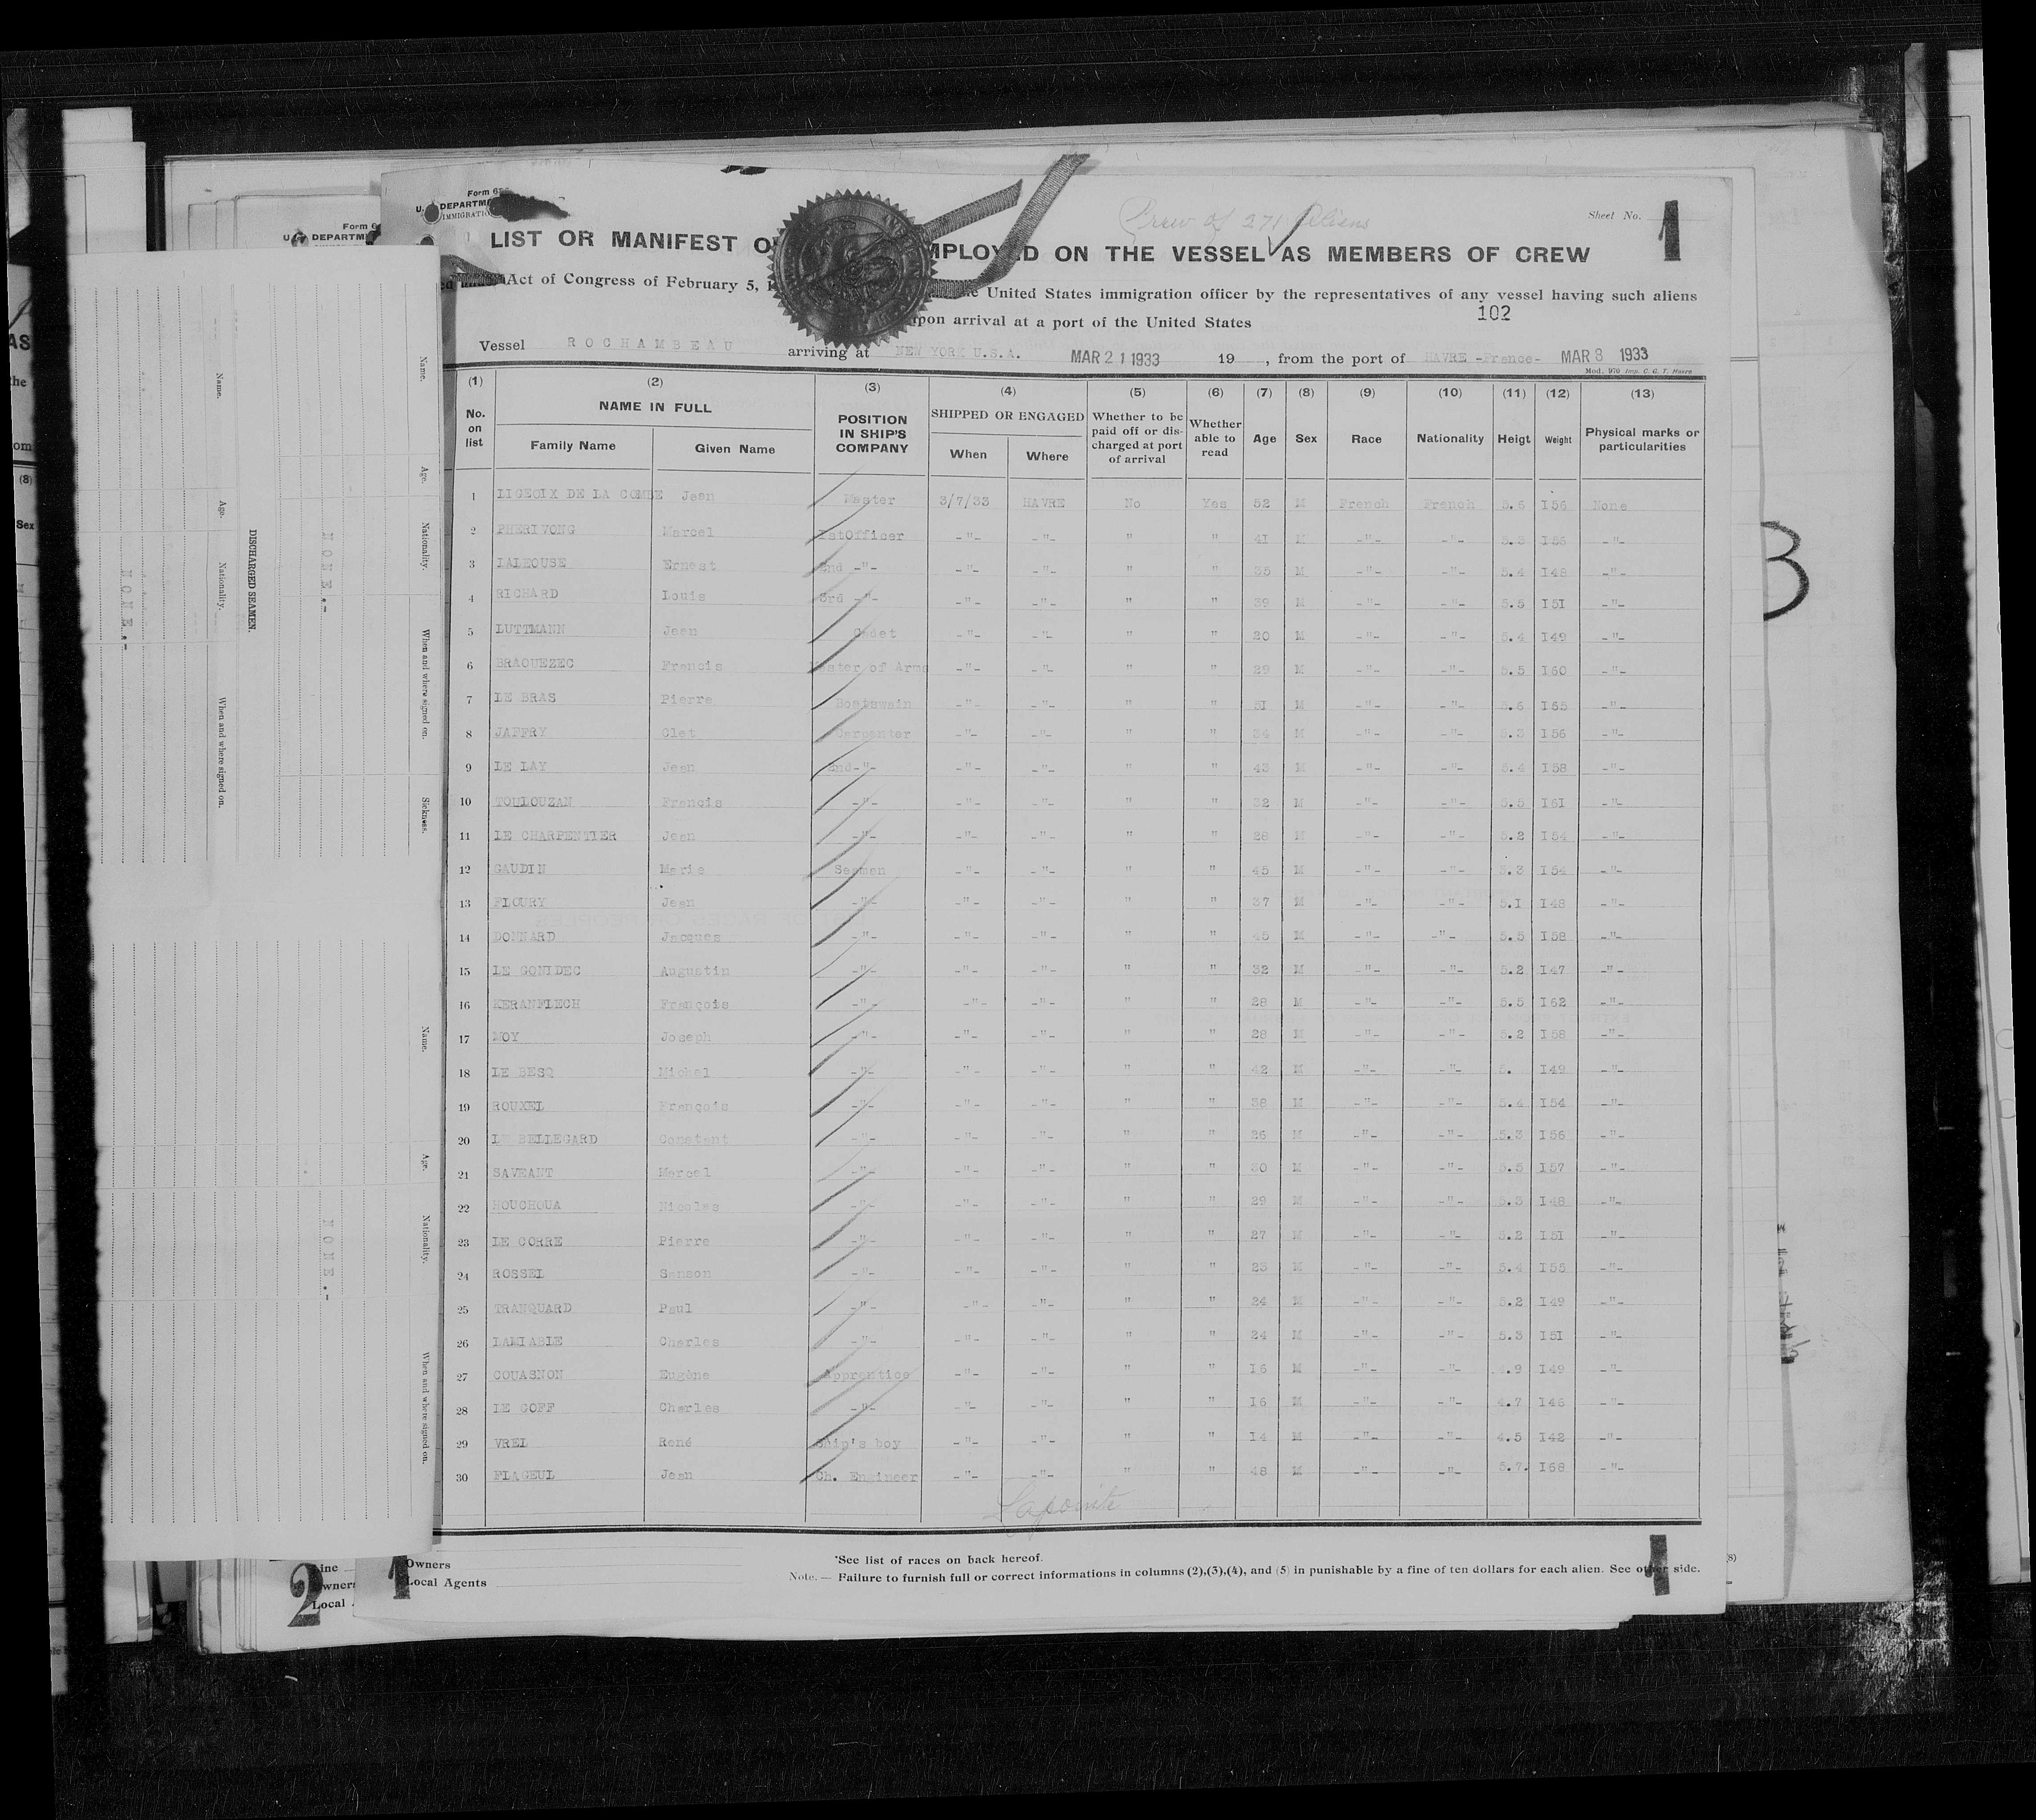 Crew of 271 Aliens
Form
U. DEPARTM
IMMIGRATIO
Sheet No. 1
LIST OR MANIFEST O MPLOYED ON THE VESSEL AS MEMBERS OF CREW
Act of Congress of February 5, United States immigration officer by the representatives of any vessel having such aliens
upon arrival at a port of the United States
102
Vessel ROCHAMBEAU arriving at NEW YORK U.S.A. MAR 21 1933 19 , from the port of HAVRE -France- MAR 8 1933
Mod. 970 Imp. C. G. T. Havre
(1) (2) (3) (4) (5) (6) (7) (8) (9) (10) (11) (12) (13)
No. on list NAME IN FULL Family Name Given Name POSITION IN SHIP'S COMPANY SHIPPED OR ENGAGED When Where Whether to be paid off or discharged at port of arrival Whether able to read Age Sex Race Nationality Heigt Weight Physical marks or particularities
1 LIGEOIX DE LA COMBE Jean Master 3/7/33 HAVRE No Yes 52 M French French 5.6 I56 None
2 PHERIVONG Marcel IstOfficer -"- -"- " " 41 M -"- -"- 5.3 I56 -"-
3 LALEOUSE Ernest 2nd -"- -"- -"- " " 35 M -"- -"- 5.4 I48 -"-
4 RICHARD Louis 3rd -"- -"- -"- " " 39 M -"- -"- 5.5 I5I -"-
5 LUTTMANN Jean Cadet -"- -"- " " 20 M -"- -"- 5.4 I49 -"-
6 BRAOUEZEC Francis Master of Arms -"- -"- " " 29 M -"- -"- 5.5 I60 -"-
7 LE BRAS Pierre Boatswain -"- -"- " " 5I M -"- -"- 5.6 I65 -"-
8 JAFFRY Clet Carpenter -"- -"- " " 34 M -"- -"- 5.3 I56 -"-
9 LE LAY Jean 2nd-"- -"- -"- " " 43 M -"- -"- 5.4 I58 -"-
10 TOULOUZAN Francis -"- -"- -"- " " 32 M -"- -"- 5.5 I6I -"-
11 LE CHARPENTIER Jean -"- -"- -"- " " 28 M -"- -"- 5.2 I54 -"-
12 GAUDIN Marie Seaman -"- -"- " " 45 M -"- -"- 5.3 I54 -"-
13 FLOURY Jean -"- -"- -"- " " 37 M -"- -"- 5.I I48 -"-
14 DONNARD Jacques -"- -"- -"- " " 45 M -"- -"- 5.5 I58 -"-
15 LE GONIDEC Augustin -"- -"- -"- " " 32 M -"- -"- 5.2 I47 -"-
16 KERANFLECH François -"- -"- -"- " " 28 M -"- -"- 5.5 I62 -"-
17 NOY Joseph -"- -"- -"- " " 28 M -"- -"- 5.2 I58 -"-
18 LE BESQ Michel -"- -"- -"- " " 42 M -"- -"- 5. I49 -"-
19 ROUXEL François -"- -"- -"- " " 38 M -"- -"- 5.4 I54 -"-
20 LE BELLEGARD Constant -"- -"- -"- " " 26 M -"- -"- 5.3 I56 -"-
21 SAVEANT Marcel -"- -"- -"- " " 30 M -"- -"- 5.5 I57 -"-
22 HOUCHOUA Nicolas -"- -"- -"- " " 29 M -"- -"- 5.3 I48 -"-
23 LE CORRE Pierre -"- -"- -"- " " 27 M -"- -"- 5.2 I5I -"-
24 ROSSEL Sanson -"- -"- -"- " " 23 M -"- -"- 5.4 I55 -"-
25 TRANQUARD Paul -"- -"- -"- " " 24 M -"- -"- 5.2 I49 -"-
26 LAMIABLE Charles -"- -"- -"- " " 24 M -"- -"- 5.3 I5I -"-
27 COUASNON Eugène Apprentice -"- -"- " " I6 M -"- -"- 4.9 I49 -"-
28 LE GOFF Charles -"- -"- -"- " " I6 M -"- -"- 4.7 I46 -"-
29 VREL René Ship's boy -"- -"- " " I4 M -"- -"- 4.5 I42 -"-
30 FLAGEUL Jean Ch. Engineer -"- -"- " " 48 M -"- -"- 5.7. I68 -"-
Lapointe
*See list of races on back hereof.
Note. — Failure to furnish full or correct informations in columns (2),(3),(4), and (5) in punishable by a fine of ten dollars for each alien. See other side.
Owners
Local Agents
1
1
2
Line
Owners
Local
Form
U. DEPARTM
Name. Age. Nationality. When and where signed on. Sickness.
NONE.-
DISCHARGED SEAMEN.
Name. Age. Nationality. When and where signed on.
NONE.-
Name. Age. Nationality. When and where signed on.
NONE.-
AS
the
om
(8)
Sex
3